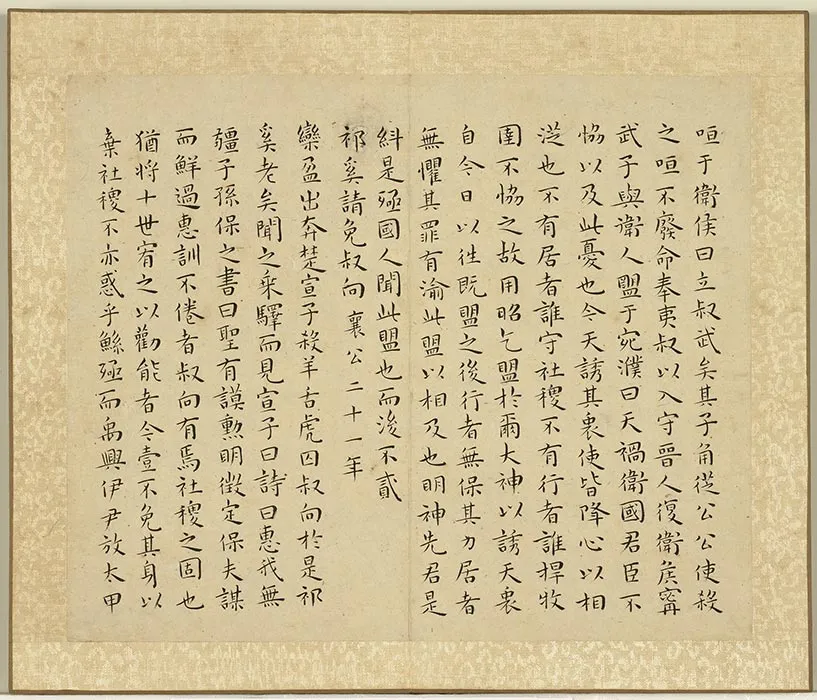 咺于衛侯曰立叔武矣其子角從公公使殺
之咺不廢命奉夷叔以入守晉人復衛侯甯
武子與衛人盟于宛濮曰天禍衛國君臣不
恊以及此憂也今天誘其衷使皆降心以相
從也不有居者誰守社稷不有行者誰捍牧
圉不恊之故用昭乞盟於爾大神以誘天衷
自今日以往既盟之後行者無保其力居者
無懼其罪有渝此盟以相及也明神先君是
糾是殛國人聞此盟也而後不貳
祁奚請免叔向 襄公二十一年
欒盈出奔楚宣子殺羊舌虎囚叔向於是祁
奚老矣聞之乘驛而見宣子曰詩曰惠我無
疆子孫保之書曰聖有謨勳明徵定保夫謀
而鮮過惠訓不倦者叔向有焉社稷之固也
猶將十世宥之以勸能者今壹不免其身以
棄社稷不亦惑乎鯀殛而禹興伊尹放太甲